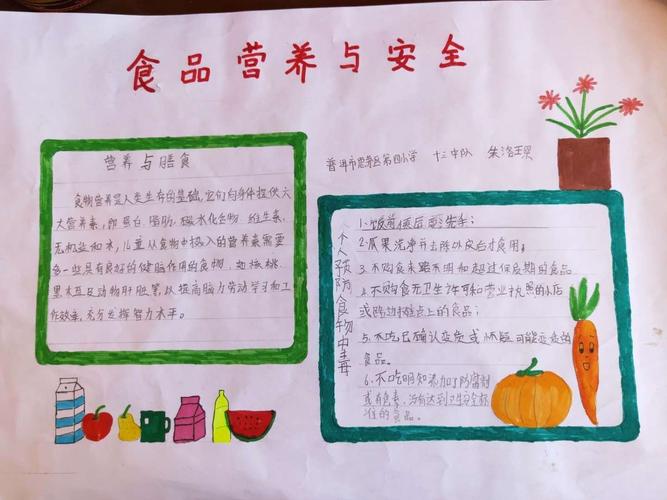 食品营养与安全
营养与膳食
食物营养是人类生存的基础,它们向身体提供六
大营养素,即蛋白、脂肪、碳水化合物、维生素、
无机盐和水,儿童从食物中摄入的营养素需要
多一些具有良好的健脑作用的食物,如核桃、
黑木耳及动物肝脏等,以提高脑力劳动学习和工
作效率,充分发挥智力水平。
普洱市思茅区第四小学 十三中队 朱洛
个人预防食物中毒
1.饭前便后要洗手;
2.瓜果洗净并去除以皮后才食用;
3.不购食来路不明和超过保质期的食品
4.不购食无卫生许可和营业执照的小店
或路边摊点上的食品;
5.不吃已确认变质或怀疑可能变质的
食品。
6.不吃明知添加了防腐剂
或有色素,没有达到卫生安全标
准的食品。